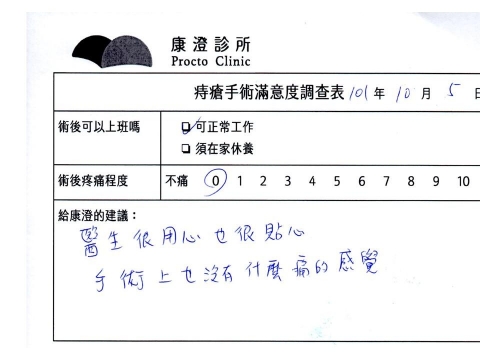 康澄診所
Procto Clinic
痔瘡手術滿意度調查表 101年 10月 5日
術後可以上班嗎
☑ 可正常工作
□ 須在家休養
術後疼痛程度 不痛 0 1 2 3 4 5 6 7 8 9 10
給康澄的建議：
醫生很用心也很貼心
手術上也沒有什麼痛的感覺